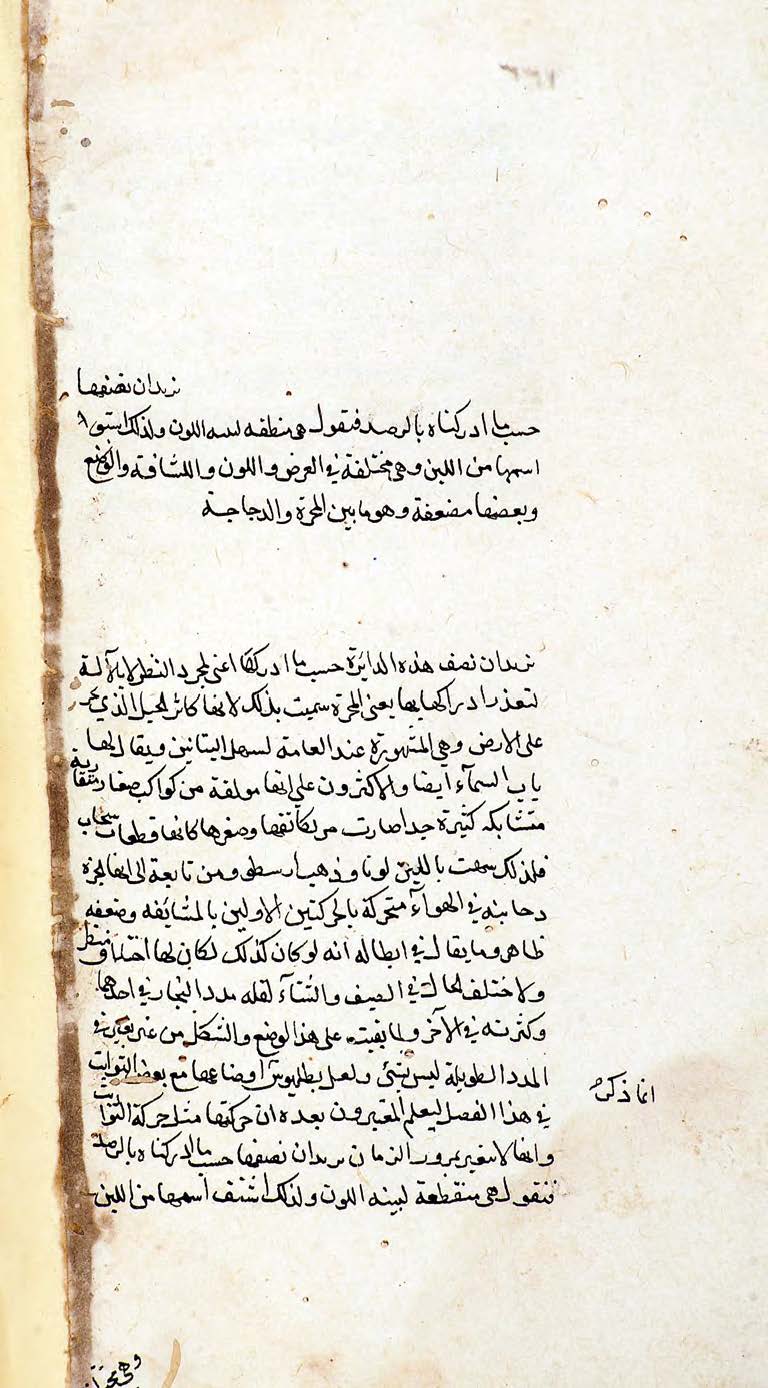 نريد ان نصفها
حسب ما ادركناه بالرصد فنقول هي منطقه لبنيه اللون ولذلك اشتق
اسمها من اللبن وهي مختلفة في العرض واللون والكثافة والوضع
وبعضها مضعفة وهو ما بين المجرة والدجاجة
نريد ان نصف هذه الدايرة حسب ما ادركها اعنى لمجرد النظر لا بآلة
لتعذر ادراكها بها يعنى المجرة سميت بذلك لانها كاثر الحبل الذي يجر
على الارض وهي المشهورة عند العامة لسهل التبانين ويقال لها
باب السمآء ايضا والاكثرون على انها مولفة من كواكب صغار متقاربة
متشابكه كثيرة جدا صارت من تكاثفها وصغرها كانها قطعات سحاب
فلذلك شبهت باللبن لونا وذهب ارسطو ومن تابعه الى انها لمجرة
دخانيه في الهوآء متحركة بالحركتين الاولين بالمشايعه وضعفه
ظاهر وما يقال في ابطاله انه لو كان كذلك لكان لها اختلاف منظر
ولاختلف الحال في الصيف والشتآء لقله مدد البخار في احدهما
وكثرته في الآخر ولما بقيت على هذا الوضع والشكل من غير تغير في
المدد الطويلة ليس بشئ ولعل بطلميوس اوضاعها مع بعض الثوابت
انما ذكر
في هذا الفصل ليعلم المعتبرون بعده ان حركتها مثل حركة الثوابت
وانها لا تتغير بمرور الزمان نريد ان نصفها حسب ما ادركناه بالرصد
فنقول هي منقطعة لبينه اللون ولذلك اشتف اسمها من اللبن
وهي